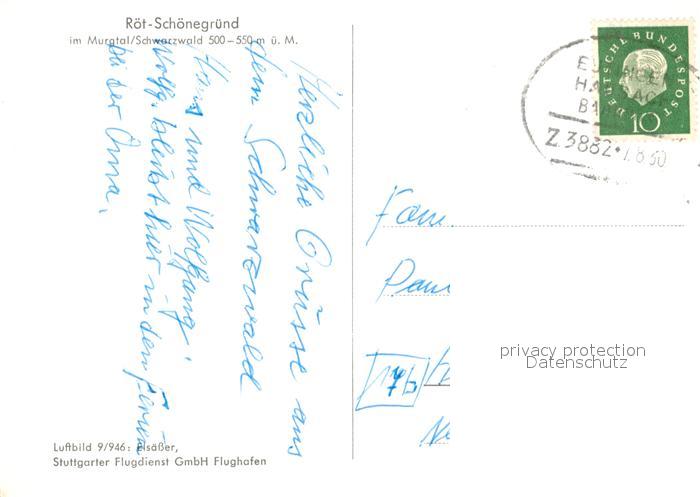 Röt-Schönegründ
im Murgtal/Schwarzwald 500–550 m ü. M.
Herzliche Grüsse aus
dem Schwarzwald
Hans und Wolfgang.
Wolfg. bleibt hier in den Ferien
bei der Oma.
Luftbild 9/946: Elsäßer,
Stuttgarter Flugdienst GmbH Flughafen
DEUTSCHE BUNDESPOST
10
Z.3882
Fam.
17b
privacy protection
Datenschutz